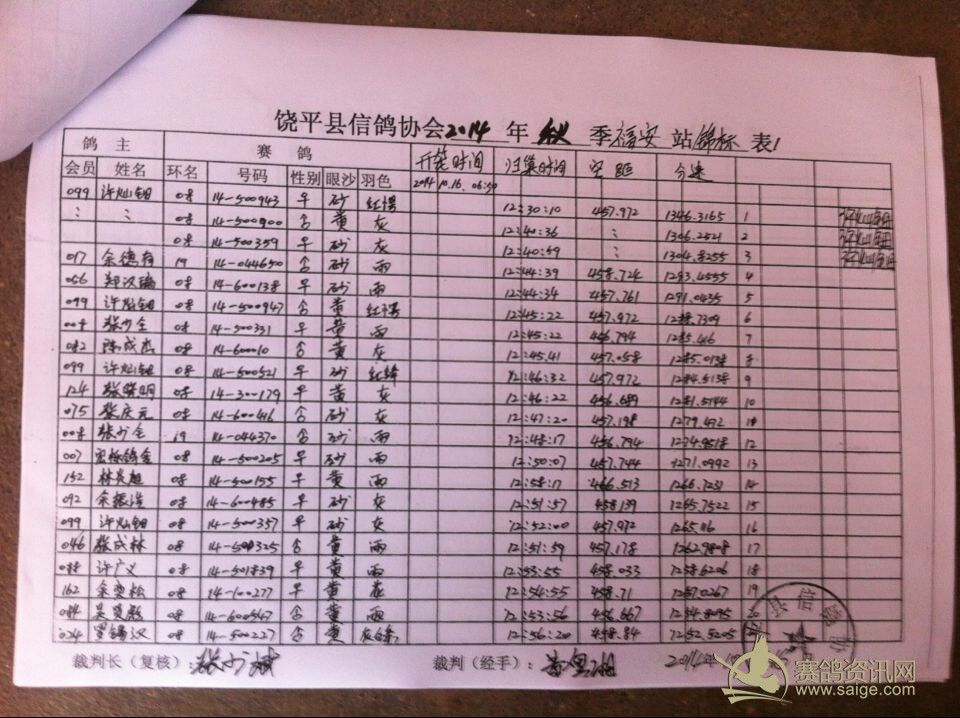 饶平县信鸽协会2014年秋季福安站锦标表1
鸽主 赛鸽 开笼时间 归巢时间 空距 分速
会员 姓名 环名 号码 性别 眼沙 羽色 2014.10.16. 06:50
099 许灿钿 08 14-500943 早 砂 红楞 12:30:10 457.972 1346.3165 1
: : 08 14-500900 合 黄 灰 12:40:36 : 1306.2521 2
08 14-500359 早 砂 灰 12:40:59 : 1304.8255 3
017 余德有 19 14-044650 合 砂 雨 12:44:39 458.724 1293.4555 4
056 郑汉 08 14-600138 早 砂 雨 12:44:34 457.761 1291.0435 5
099 许灿钿 08 14-500947 合 黄 红楞 12:45:22 457.972 7309 6
008 张少全 08 14-500331 早 黄 雨 12:45:22 456.794 1285.416 7
082 陈成杰 08 14-60010 合 黄 灰 12:45.41 457.058 1285.0138 8
099 许灿钿 08 14-500521 早 砂 12:46:32 457.972 1284.5138 9
124 张 明 08 14-300179 早 黄 灰 12:46:22 456.689 1281.5144 10
075 张庆元 08 14-600416 合 砂 灰 12:47:20 457.198 1279.472 11
008 张少全 19 14-044370 合 砂 雨 12:48:17 456.794 1274.9518 12
007 08 14-500205 早 砂 雨 12:50:07 457.744 1271.0992 13
152 林炎 08 14-500155 早 黄 雨 12:58:17 466.513 1266.7231 14
092 余振 08 14-600485 早 砂 灰 12:51:57 458.139 1265.7522 15
099 许灿钿 08 14-500357 早 砂 灰 12:52:00 457.972 1265.116 16
046 张成林 08 14-500325 合 黄 雨 12:51:59 457.178 1262.9808 17
088 许广义 08 14-501839 早 黄 雨 12:53:55 458.033 1258.6206 18
162 余奕松 08 14-100277 早 黄 灰 12:54:55 458.71 1257.0267 19
084 吴 08 14-600547 合 黄 雨 12:53:56 456.667 1254.8095 20
024 罗锡汉 08 14-500227 合 黄 12:56:20 458.84 1252.5205 21
裁判长（复核）： 张少斌 裁判（经手）： 2014年
县信鸽协
赛鸽资讯网
www.saige.com